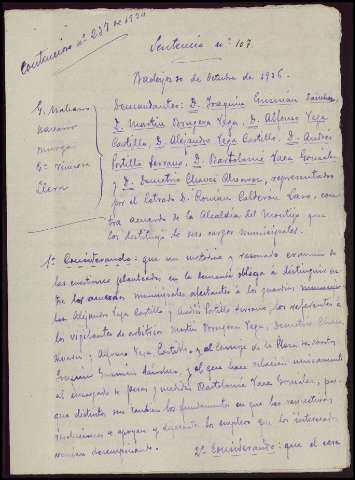 Contencioso nº 237 de 1934
Sentencia nº 107.
Badajoz 30 de Octubre de 1936.
Demandantes: D. Joaquin Guzmán Sanchez,
D. Martin Bruguera Vega, D. Alfonso Vega
Castillo, D. Alejandro Vega Castillo, D. Andrés
Portillo Serrano, D. Bartolomé Vaca González
y D. Demetrio Chaves Alvarez, representados
por el Letrado D. Román Calderón Lara, con-
tra acuerdo de la Alcaldía del Montijo que
los destituyó de sus cargos municipales.
1º Considerando: que un metódico y razonado examen de
las cuestiones planteadas en la demanda obliga a distinguir en-
tre los acuerdos municipales afectantes a los guardias
Alejandro Vega Castillo y Andrés Portillo Serrano, los referentes a
los vigilantes de arbitrios Martin Bruguera Vega, Demetrio Chaves
Alvarez y Alfonso Vega Castillo, y al Conserje de la Plaza de
Joaquin Guzmán Sánchez, y el que hace relación unicamente
al encargado de pesas y medidas Bartolomé Vaca González, por-
que distintos son tambien los fundamentos en que las respectivas
se apoyan y diversos los empleos que los interesados
venian desempeñando.
2º Considerando: que el